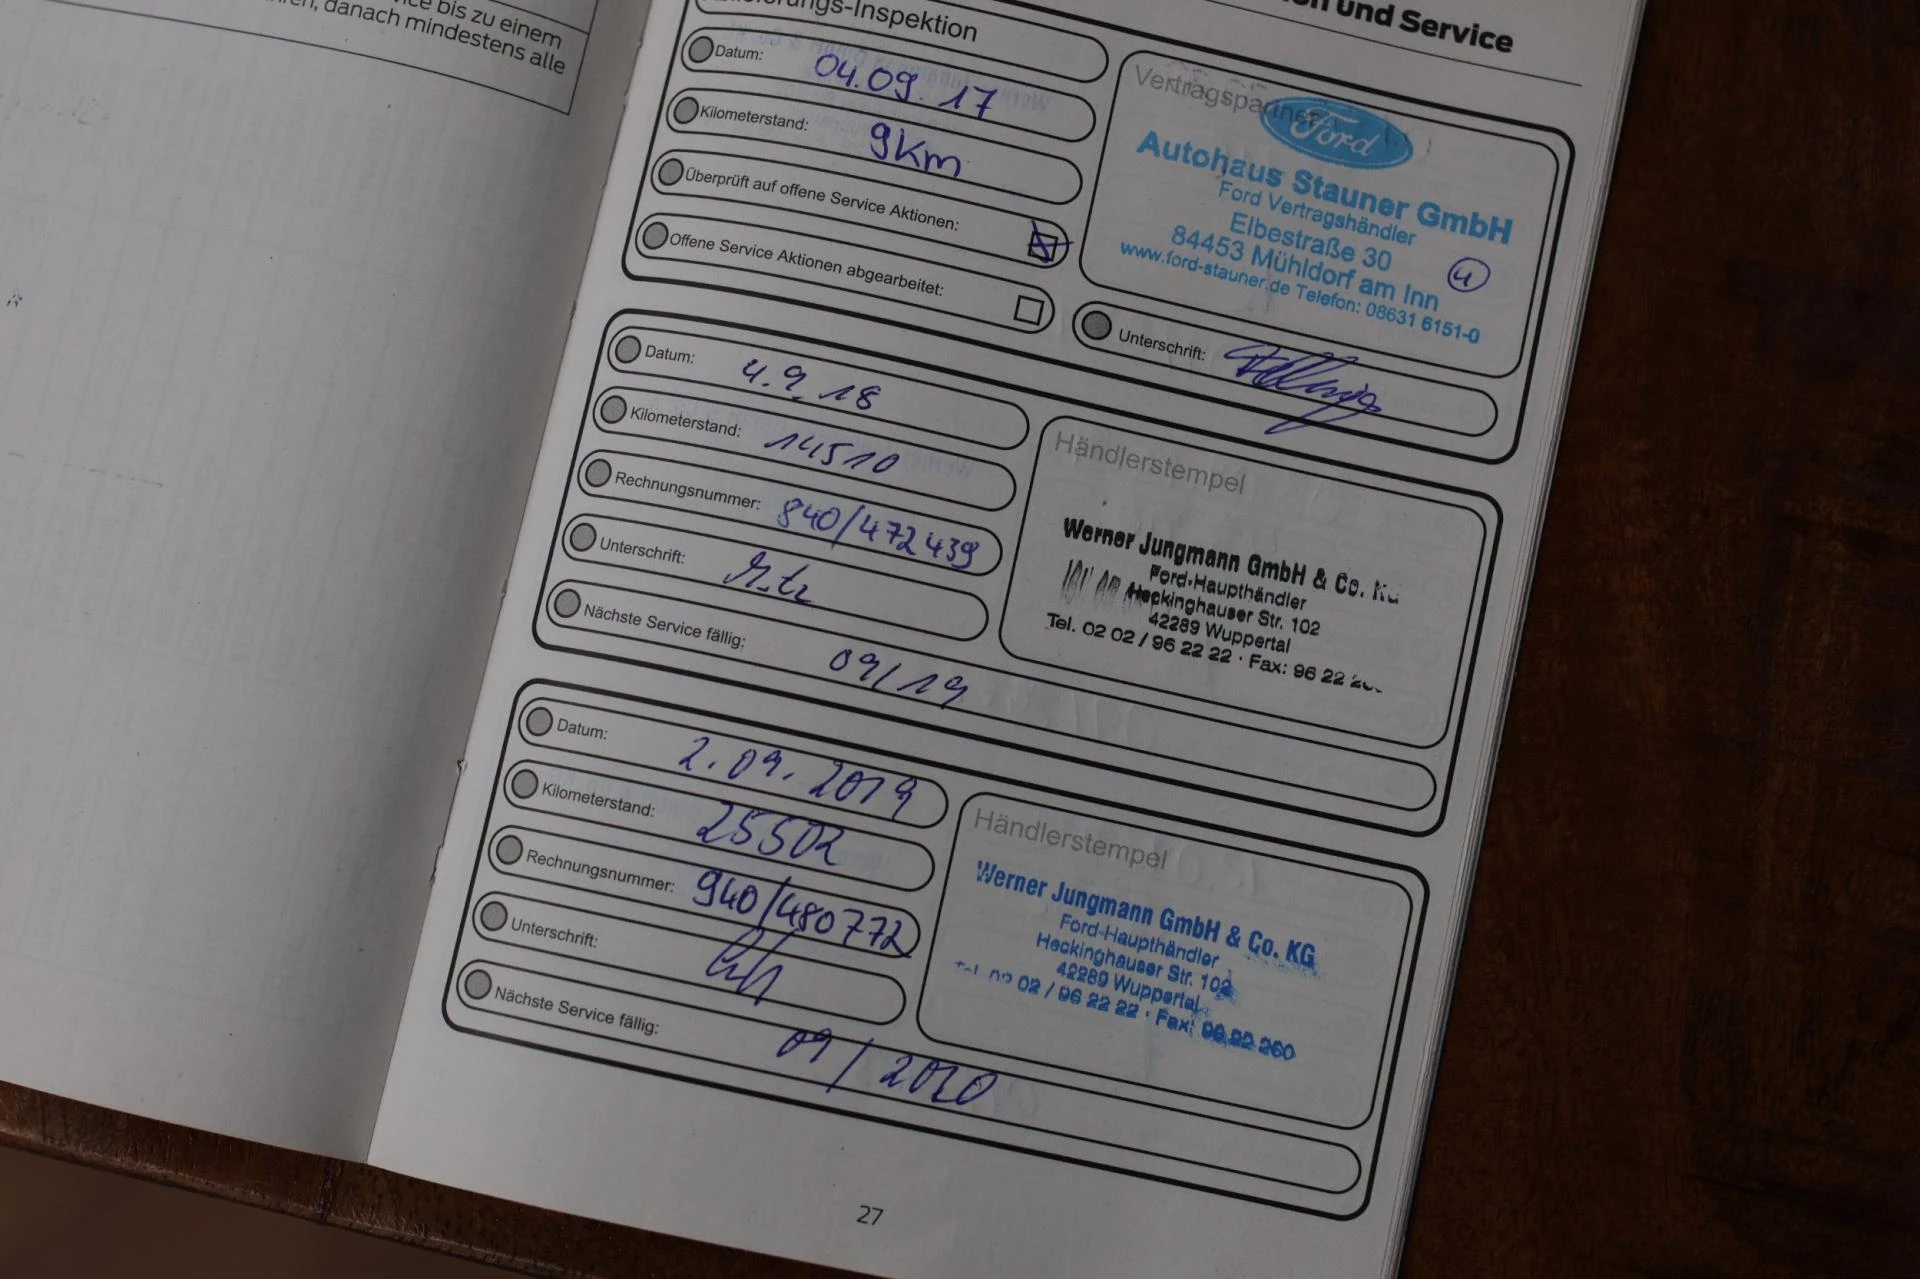 bis zu einem
danach mindestens alle
und Service
Datum: 04.09.17
Kilometerstand: 9km
Überprüft auf offene Service Aktionen:
Offene Service Aktionen abgearbeitet:
Vertragspartner
Ford
Autohaus Stauner GmbH
Ford Vertragshändler
Elbestraße 30
84453 Mühldorf am Inn
www.ford-stauner.de Telefon: 08631 6151-0
Unterschrift:
Datum: 4.9.18
Kilometerstand: 14510
Rechnungsnummer: 840/472439
Unterschrift:
Nächste Service fällig: 09/19
Händlerstempel
Werner Jungmann GmbH & Co. KG
Ford-Haupthändler
Heckinghauser Str. 102
42289 Wuppertal
Tel. 02 02 / 96 22 22 · Fax: 96 22
Datum: 2.09.2019
Kilometerstand: 25502
Rechnungsnummer: 940/480772
Unterschrift:
Nächste Service fällig: 09/2020
Händlerstempel
Werner Jungmann GmbH & Co. KG
Ford-Haupthändler
Heckinghauser Str. 102
42289 Wuppertal
02 02 / 96 22 22 · Fax: 96 22 260
27